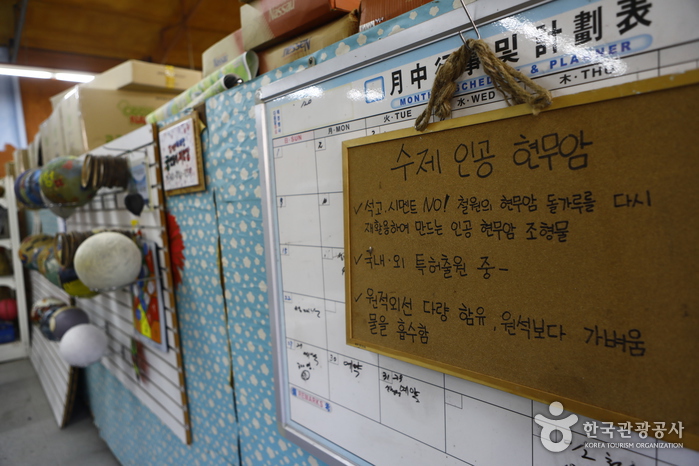 月中行事 및 計劃表
MONTHLY SCHEDULE & PLANNER
日·SUN
月·MON
火·TUE
水·WED
木·THU
수제 인공 현무암
✓석고, 시멘트 NO! 철원의 현무암 돌가루를 다시
재활용하여 만드는 인공 현무암 조형물
✓국내·외 특허출원 중-
✓원적외선 다량 함유, 원석보다 가벼움
물을 흡수함
예약
REMARKS
한국관광공사
KOREA TOURISM ORGANIZATION